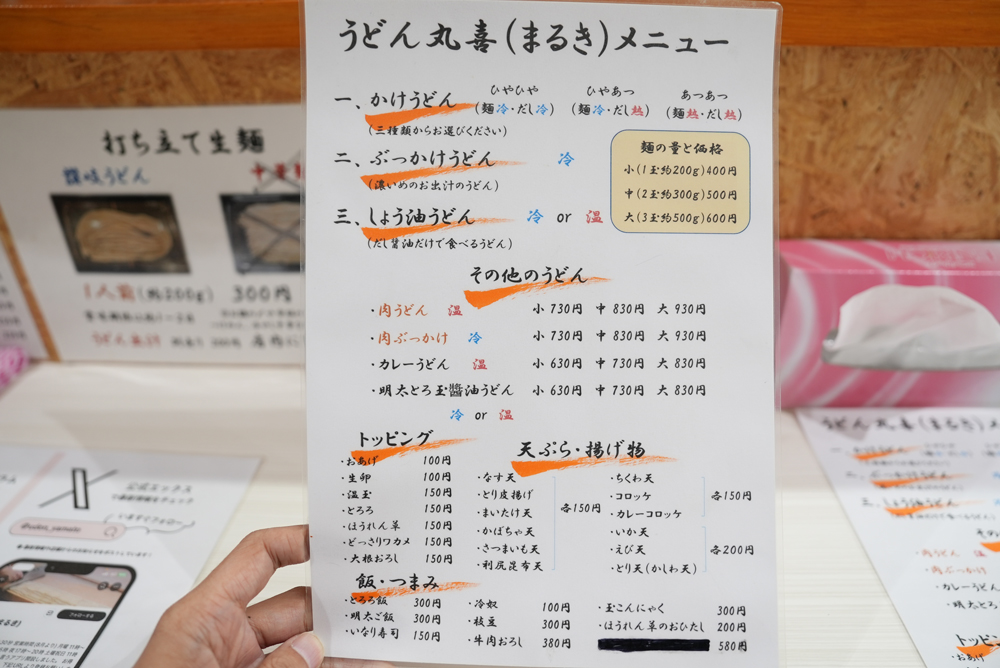 うどん丸喜(まるき)メニュー
一、かけうどん ひやひや(麺冷・だし冷) ひやあつ(麺冷・だし熱) あつあつ(麺熱・だし熱)
(三種類からお選びください)
二、ぶっかけうどん 冷
(濃いめのお出汁のうどん)
三、しょう油うどん 冷 or 温
(だし醤油だけで食べるうどん)
麺の量と価格
小(1玉約200g)400円
中(2玉約300g)500円
大(3玉約500g)600円
その他のうどん
・肉うどん 温 小 730円 中 830円 大 930円
・肉ぶっかけ 冷 小 730円 中 830円 大 930円
・カレーうどん 温 小 630円 中 730円 大 830円
・明太とろ玉醬油うどん 小 630円 中 730円 大 830円
冷 or 温
トッピング
・おあげ 100円
・生卵 100円
・温玉 150円
・とろろ 150円
・ほうれん草 150円
・どっさりワカメ 150円
・大根おろし 150円
天ぷら・揚げ物
・なす天
・とり皮揚げ
・まいたけ天
・かぼちゃ天
・さつまいも天
・利尻昆布天
各150円
・ちくわ天
・コロッケ
・カレーコロッケ
各150円
・いか天
・えび天
・とり天(かしわ天)
各200円
飯・つまみ
・とろろ飯 300円
・明太ご飯 300円
・いなり寿司 150円
・冷奴 100円
・枝豆 300円
・牛肉おろし 380円
・玉こんにゃく 300円
・ほうれん草のおひたし 200円
580円
打ち立て生麺
讃岐うどん
1人前(約200g) 300円
公式エックス
いますぐフォロー
うどん丸喜(まるき)メ
・肉うどん 温
・肉ぶっかけ
・カレーうどん
・明太とろ
トッピ
・おあげ